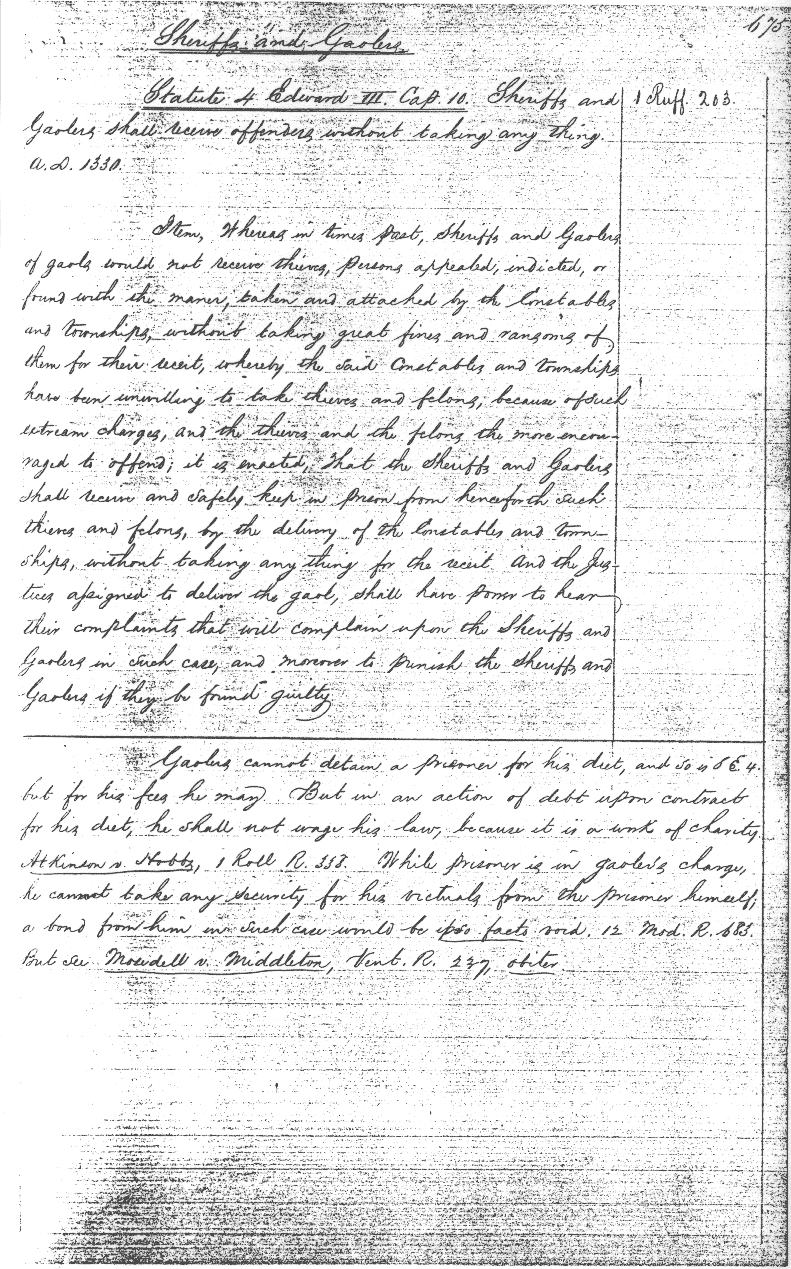 675
Sheriffs and Gaolers.
Statute 4 Edward III. Cap. 10. Sheriffs and
1 Ruff. 203.
Gaolers shall receive offenders without taking any thing.
A.D. 1330.
Item, Whereas in times past, Sheriffs and Gaolers
of gaols would not receive thieves, persons appealed, indicted, or
found with the maner, taken and attached by the Constables
and townships, without taking great fines and ransoms of
them for their receit, whereby the said Constables and townships
have been unwilling to take thieves and felons, because of such
extream charges, and the thieves and the felons the more encou-
raged to offend; it is enacted, That the Sheriffs and Gaolers
shall receive and safely keep in prison from henceforth such
thieves and felons, by the delivery of the Constables and town-
ships, without taking any thing for the receit. And the Jus-
tices assigned to deliver the gaol, shall have power to hear
their complaints that will complain upon the Sheriffs and
Gaolers in such case, and moreover to punish the Sheriffs and
Gaolers if they be found guilty
Gaolers cannot detain a prisoner for his diet, and so is 8 E. 4.
but for his fees he may. But in an action of debt upon contract
for his diet, he shall not wage his law, because it is a work of charity.
Atkinson v. Hobbs, 1 Roll R. 338. While prisoner is in gaoler's charge,
he cannot take any security for his victuals from the prisoner himself;
a bond from him in such case would be ipso facto void. 12 Mod. R. 683.
But see Mosedell v. Middleton, Vent. R. 237, obiter